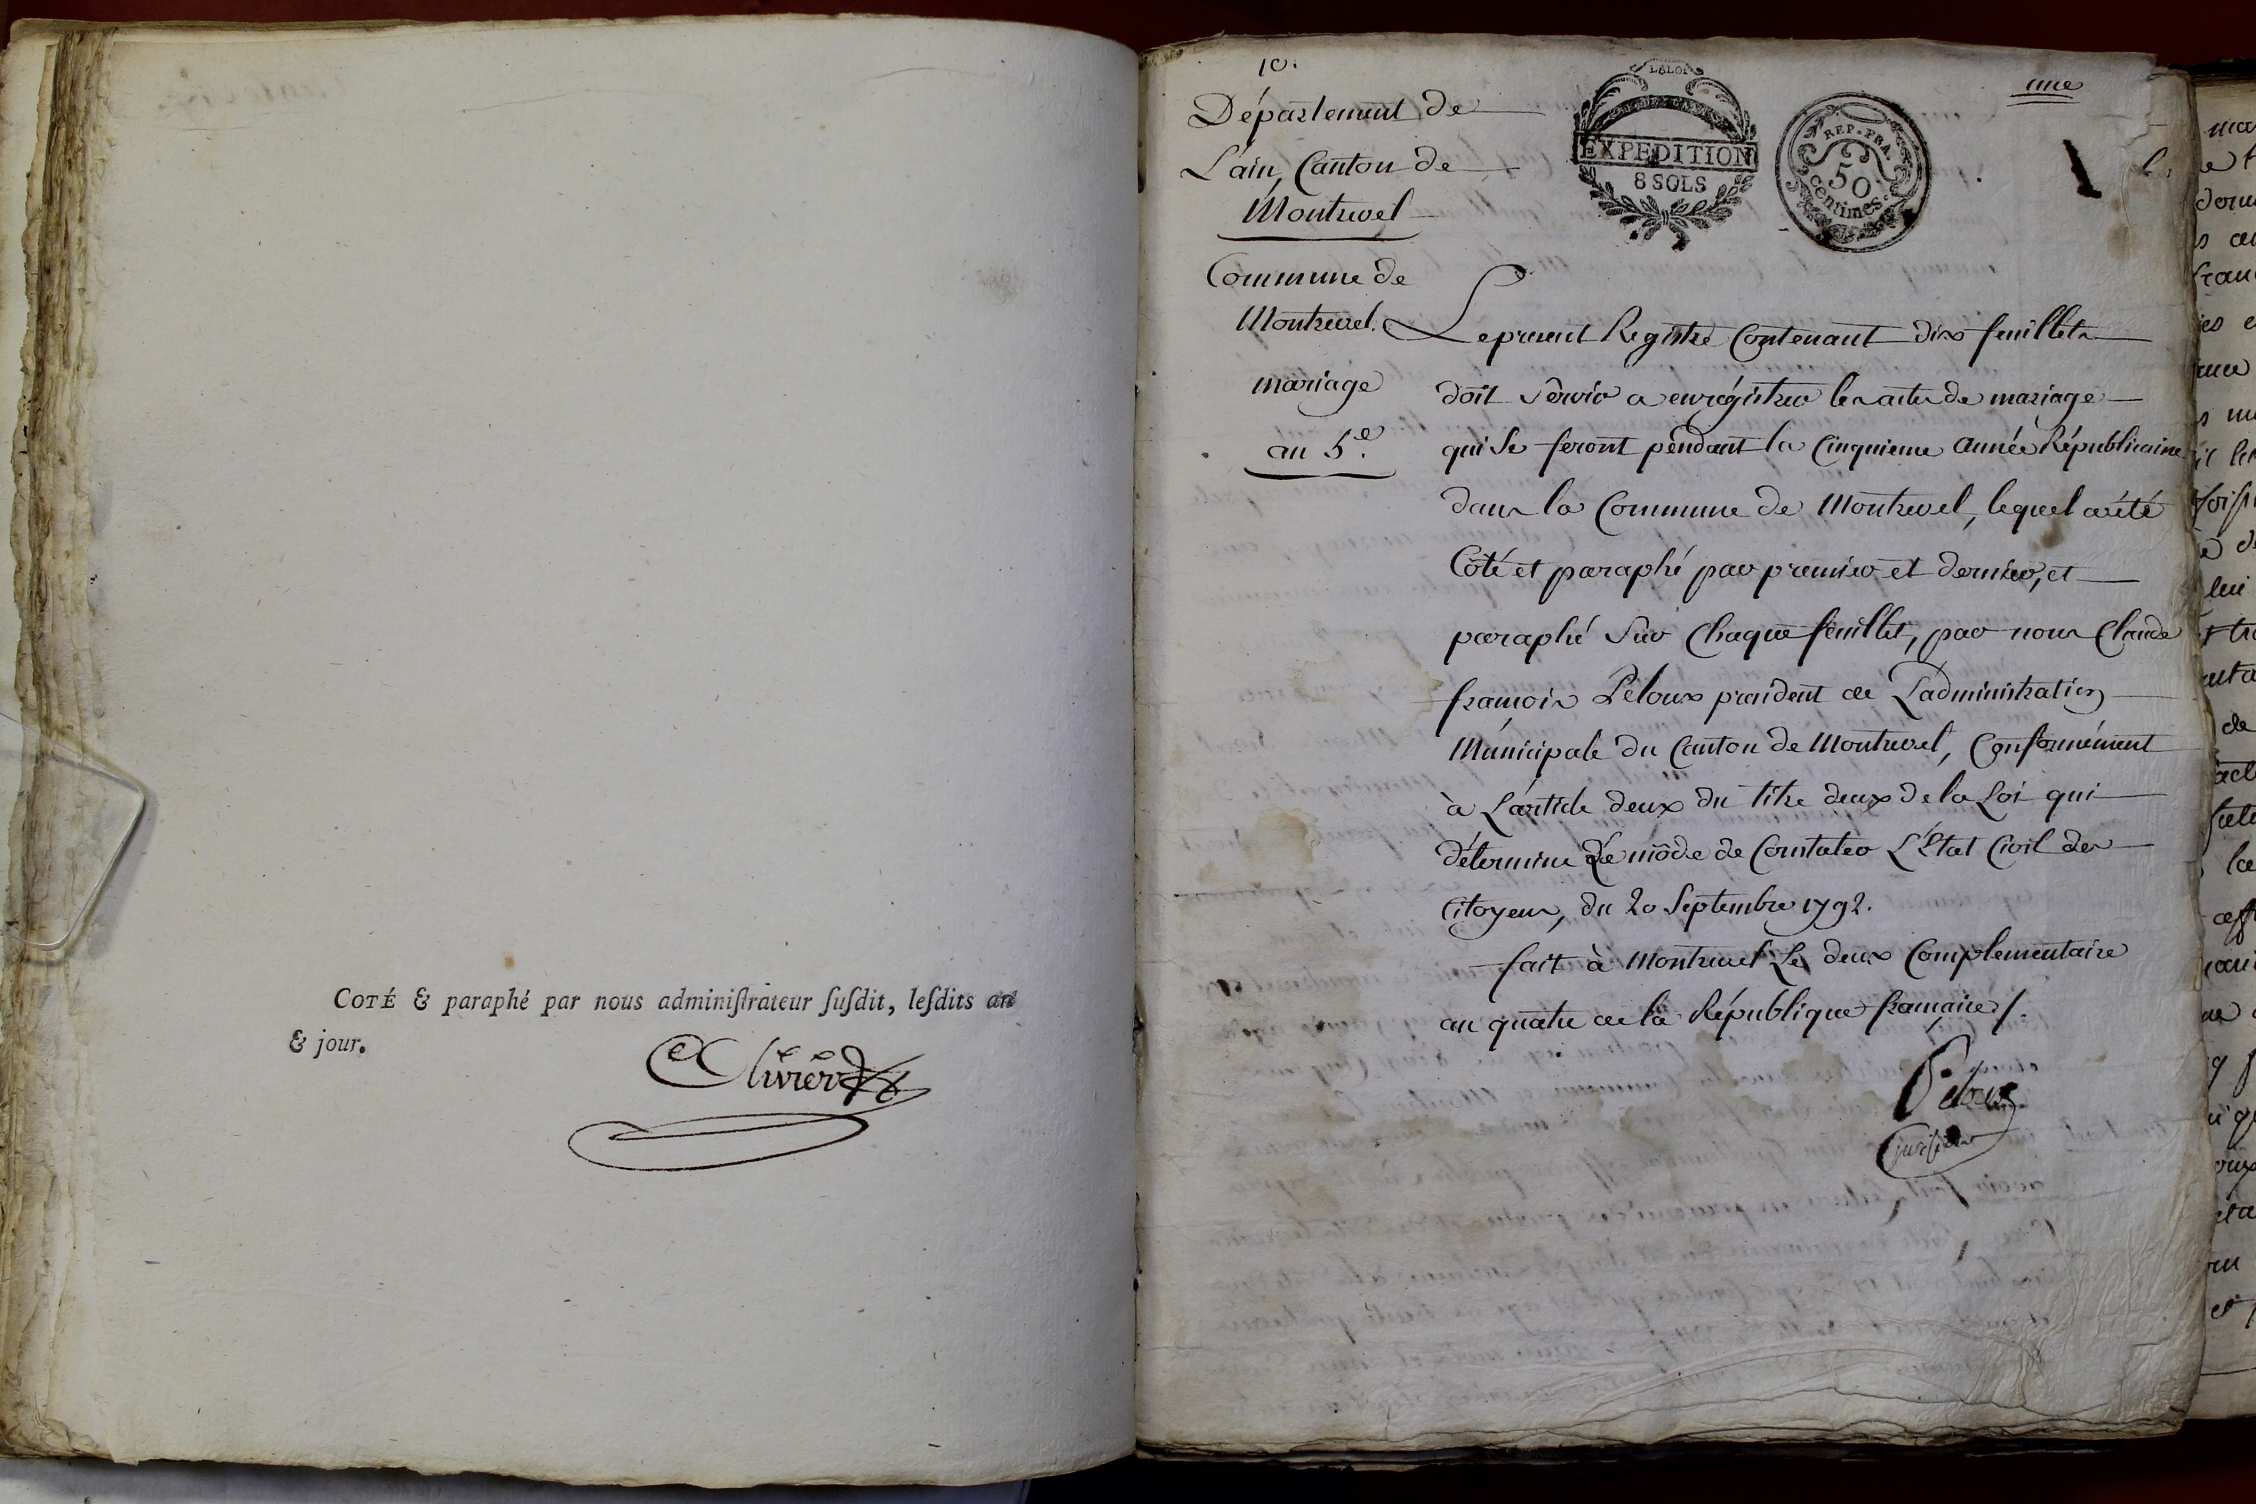 COTÉ & paraphé par nous adminiſtrateur ſuſdit, leſdits an
& jour.
Olivier
10.
une
Département de
L'ain, Canton de
Montrevel
Commune de
Montrevel.
mariage
an 5.e
LALOI
EXPEDITION
8 SOLS
REP. FRA.
50
centimes.
Le present Registre Contenant dix feuillets
doit servir a enrégistrer les actes de mariage
qui se feront pendant la Cinquieme année Républicaine
dans la Commune de Montrevel, lequel a été
Côté et paraphé par premier et dernier, et
paraphé sur Chaque feuillet, par nous Claude
françois Péloux president de L'administration
Municipale du Canton de Montrevel, Conformément
à L'article deux du titre deux de la Loi qui
détermine Le môde de Constater L'État Civil des
Citoyens, du 20 Septembre 1792.
fait à Montrevel Le deux Complementaire
an quatre de la République francaise /.
Peloux